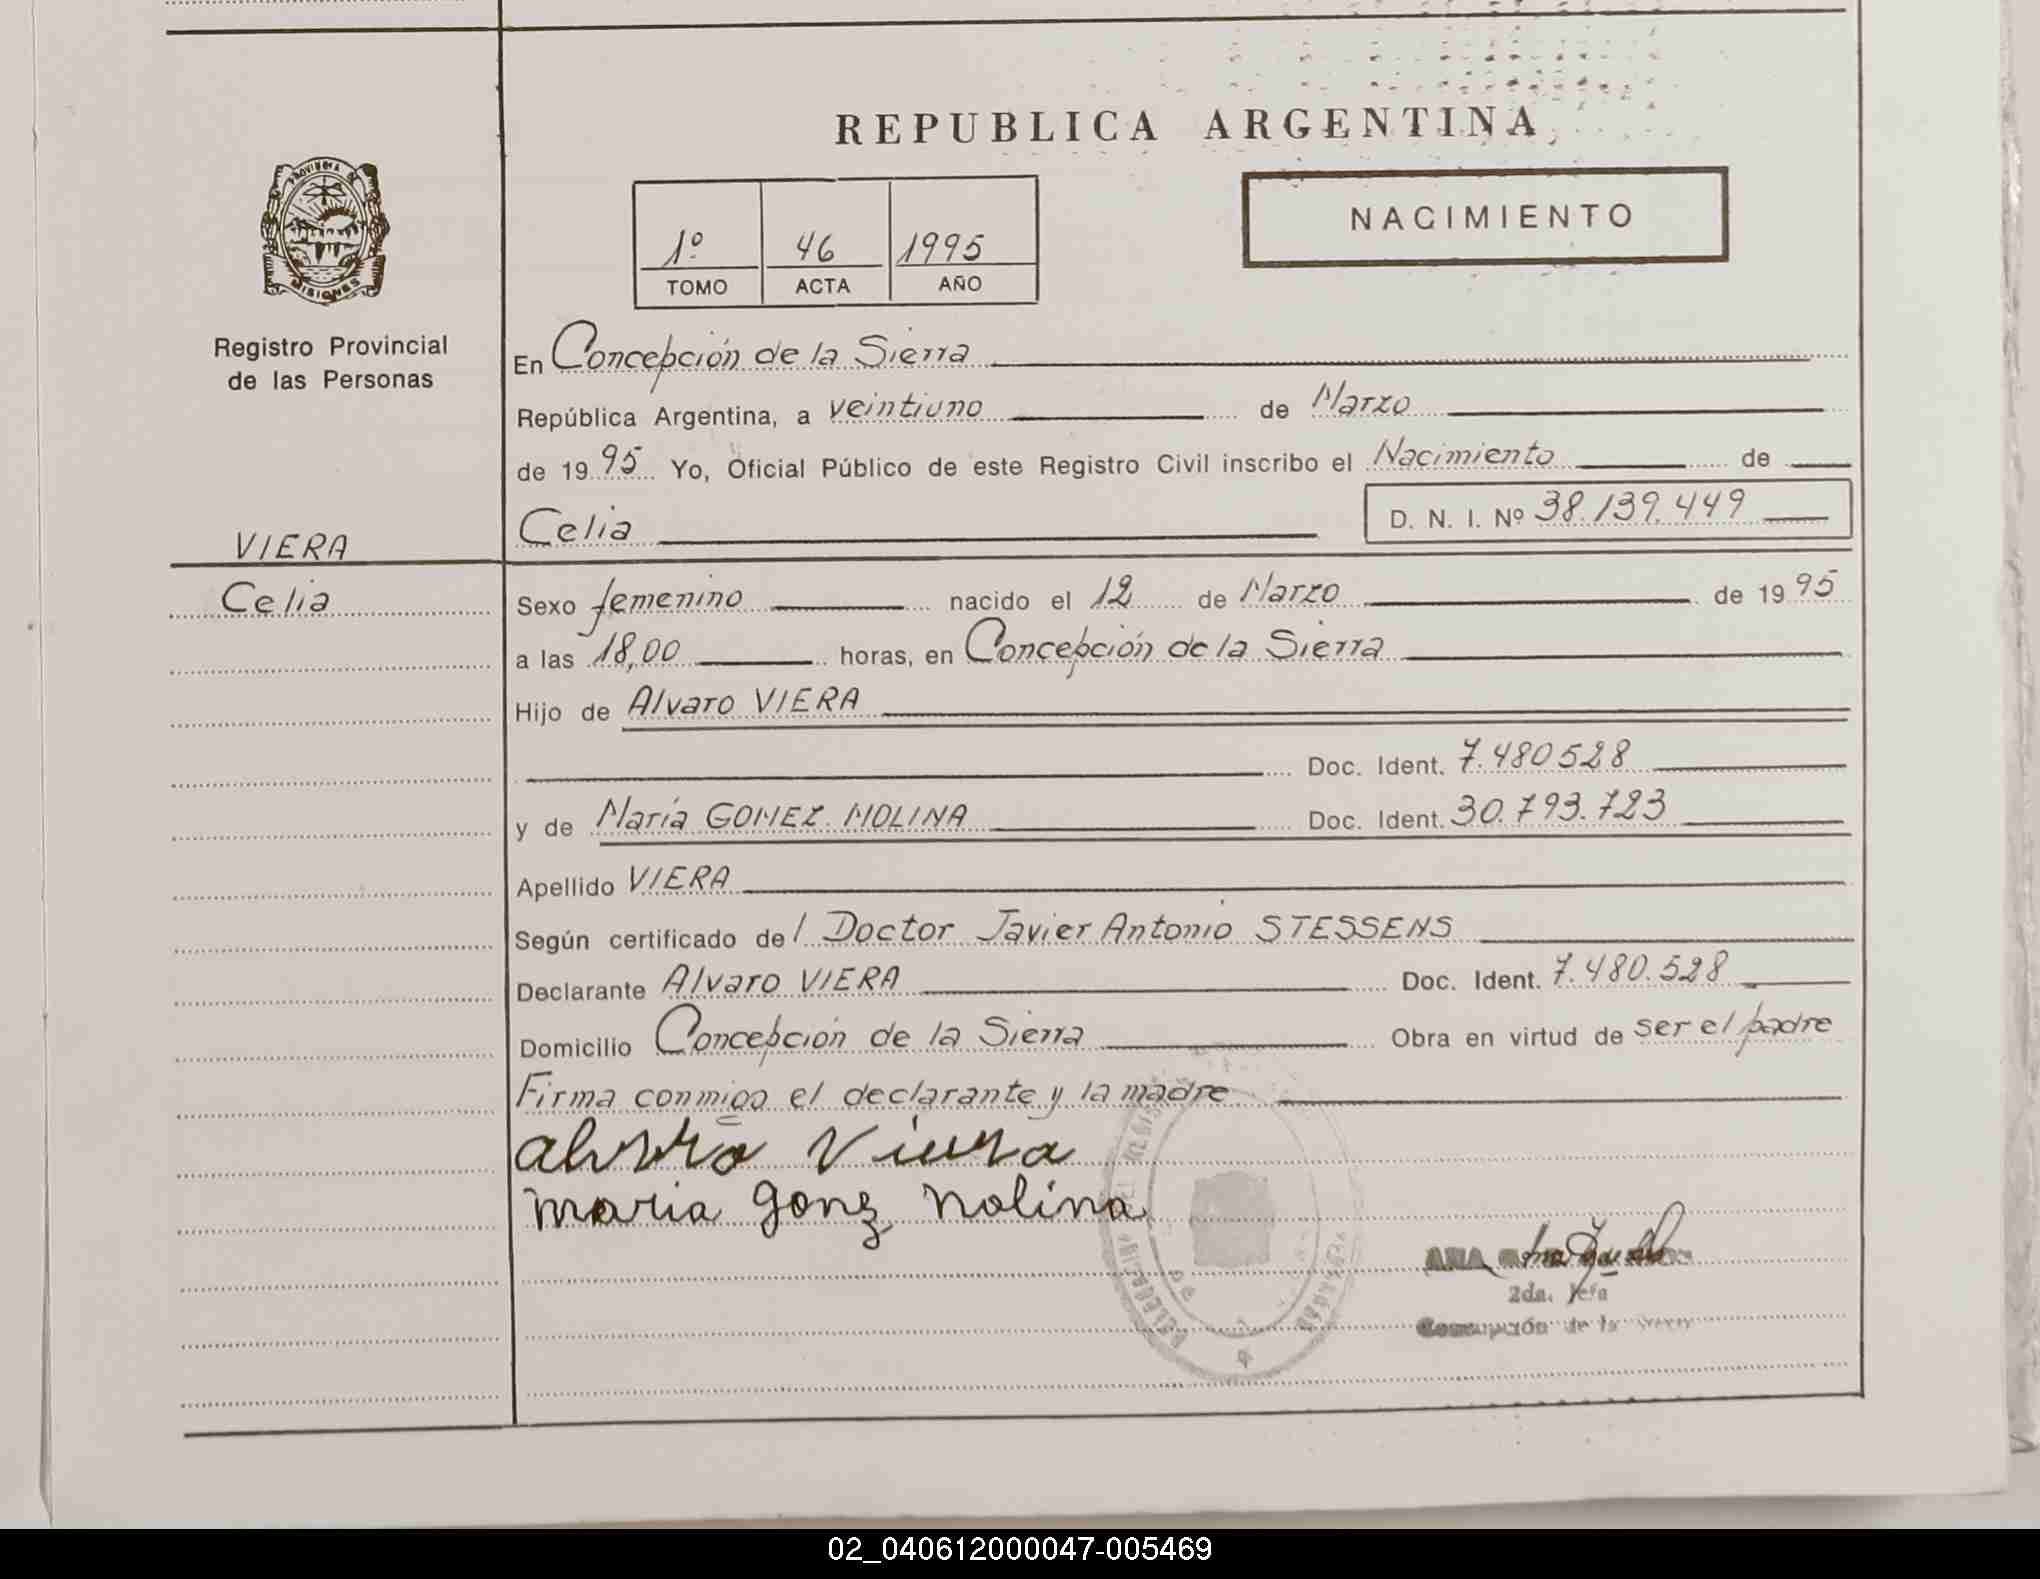 REPUBLICA ARGENTINA
PROVINCIA DE
MISIONES
Registro Provincial
de las Personas
NACIMIENTO
1º 46 1995
TOMO ACTA AÑO
En Concepción de la Sierra
República Argentina, a veintiuno de Marzo
de 1995 Yo, Oficial Público de este Registro Civil inscribo el Nacimiento de
Celia D. N. I. Nº 38.139.449
VIERA
Celia
Sexo femenino nacido el 12 de Marzo de 1995
a las 18,00 horas, en Concepción de la Sierra
Hijo de Alvaro VIERA
Doc. Ident. 7.480528
y de María GOMEZ MOLINA Doc. Ident. 30.793.723
Apellido VIERA
Según certificado del Doctor Javier Antonio STESSENS
Declarante Alvaro VIERA Doc. Ident. 7.480.528
Domicilio Concepción de la Sierra Obra en virtud de ser el padre
Firma conmigo el declarante y la madre
alvaro Viera
maria gomz molina
ANA
2da. Jefa
Concepción de la Sierra
02_040612000047-005469